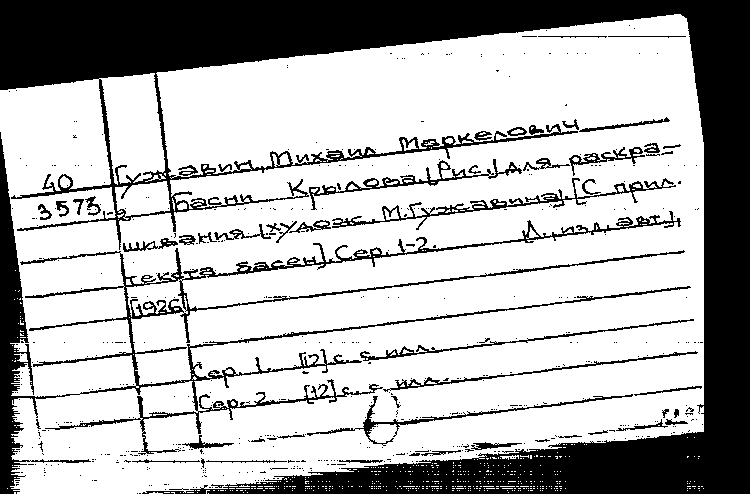 Гужавин, Михаил Маркелович
40
3573
1-2
Басни Крылова. [Рис.] для раскра-
шивания [худож. М. Гужавина]. [С прил.
текста басен]. Сер. 1-2. Л., изд. авт.],
[1926].
Сер. 1. [12] с. с илл.
Сер. 2. [12] с. с илл.